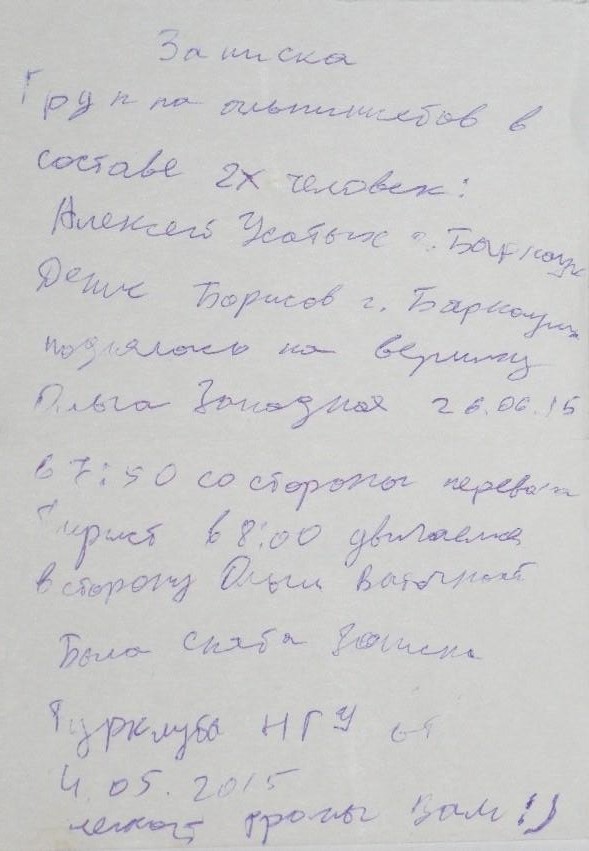 Записка
Группа альпинистов в
составе 2х человек:
Алексей Усатых г. Барнаул
Денис Борисов г. Барнаул
поднялась на вершину
Ольга Западная 26.06.15
в 7:50 со стороны перевала
Турист в 8:00 двигаемся
в сторону Ольги Восточной
Была снята записка
Турклуба НГУ от
4.05.2015
легкой тропы Вам!:)